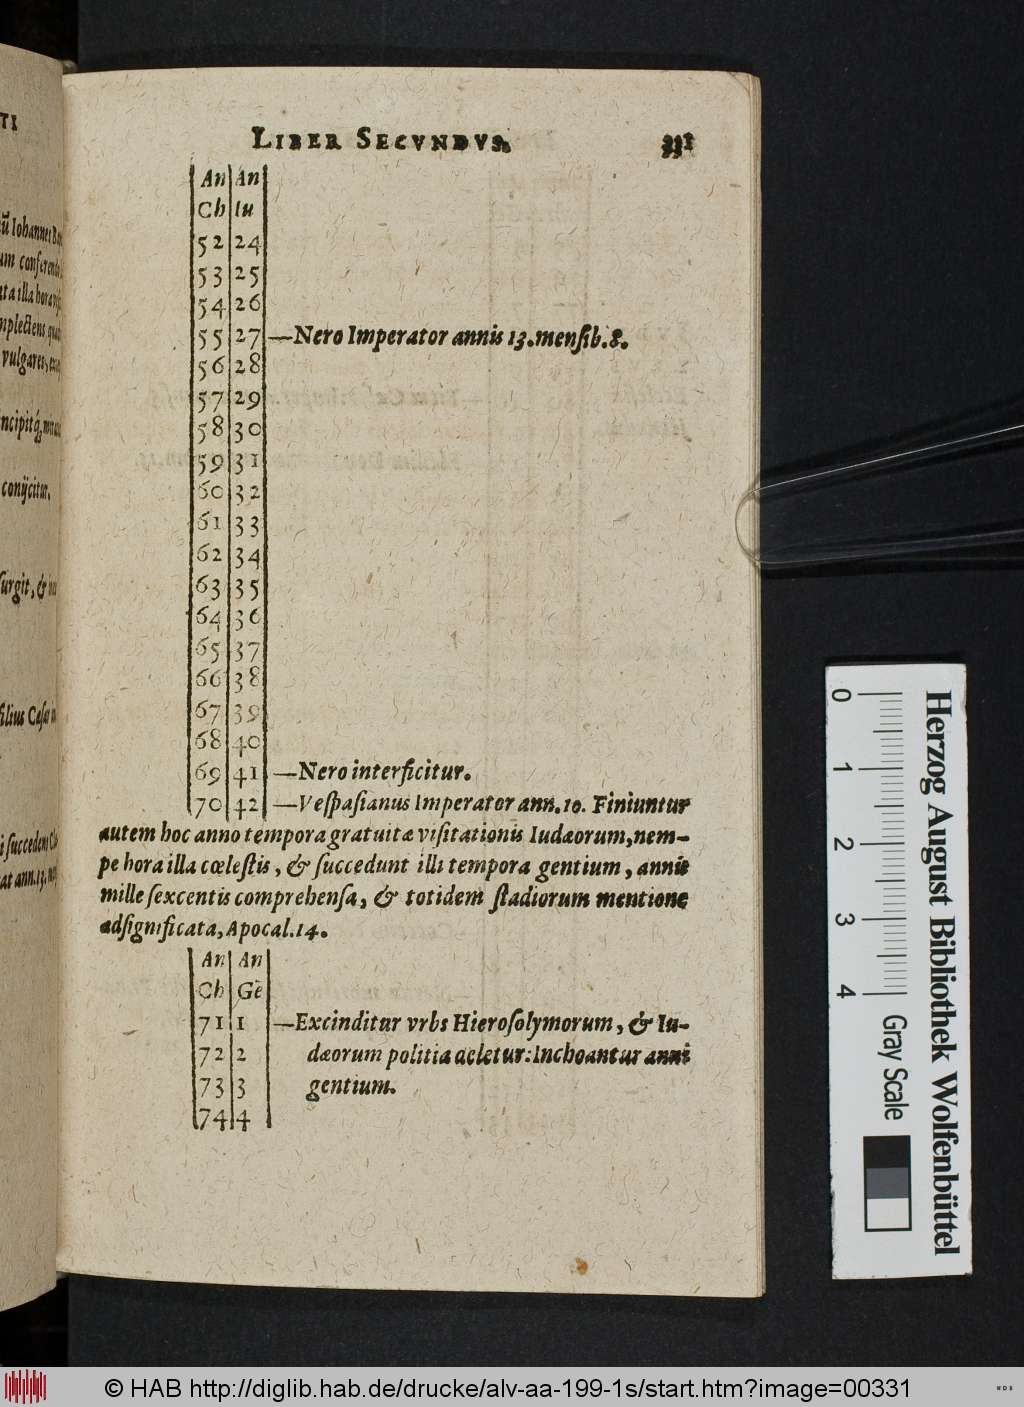 TI
LIBER SECVNDVS.
An An
Ch Iu
52 24
53 25
54 26
55 27 —Nero Imperator annis 13.mensib.8.
56 28
57 29
58 30
59 31
60 32
61 33
62 34
63 35
64 36
65 37
66 38
67 39
68 40
69 41 —Nero interficitur.
70 42 —Veſpaſianus Imperator ann.10. Finiuntur
autem hoc anno tempora gratuitæ viſitationis Iudæorum, nem-
pe hora illa cœleſtis, & ſuccedunt illi tempora gentium, annis
mille ſexcentis comprehenſa, & totidem ſtadiorum mentione
adſignificata, Apocal.14.
An An
Ch Gē
71 1 —Excinditur vrbs Hieroſolymorum, & Iu-
72 2 dæorum politia deletur: Inchoantur anni
73 3 gentium.
74 4
ū Iohannes
um
illa hora
vulgares,
conijcitur.
ſurgit, &
filius Cæſar
at ann.13.
0 1 2 3 4
Gray Scale
Herzog August Bibliothek Wolfenbüttel
© HAB http://diglib.hab.de/drucke/alv-aa-199-1s/start.htm?image=00331